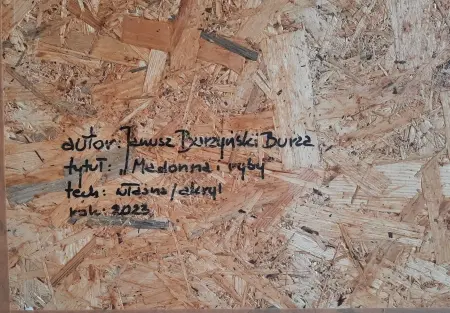 autor: Janusz Burzyński Burza
tytuł: „Madonna i ryby"
tech: własna/akryl
rok: 2023